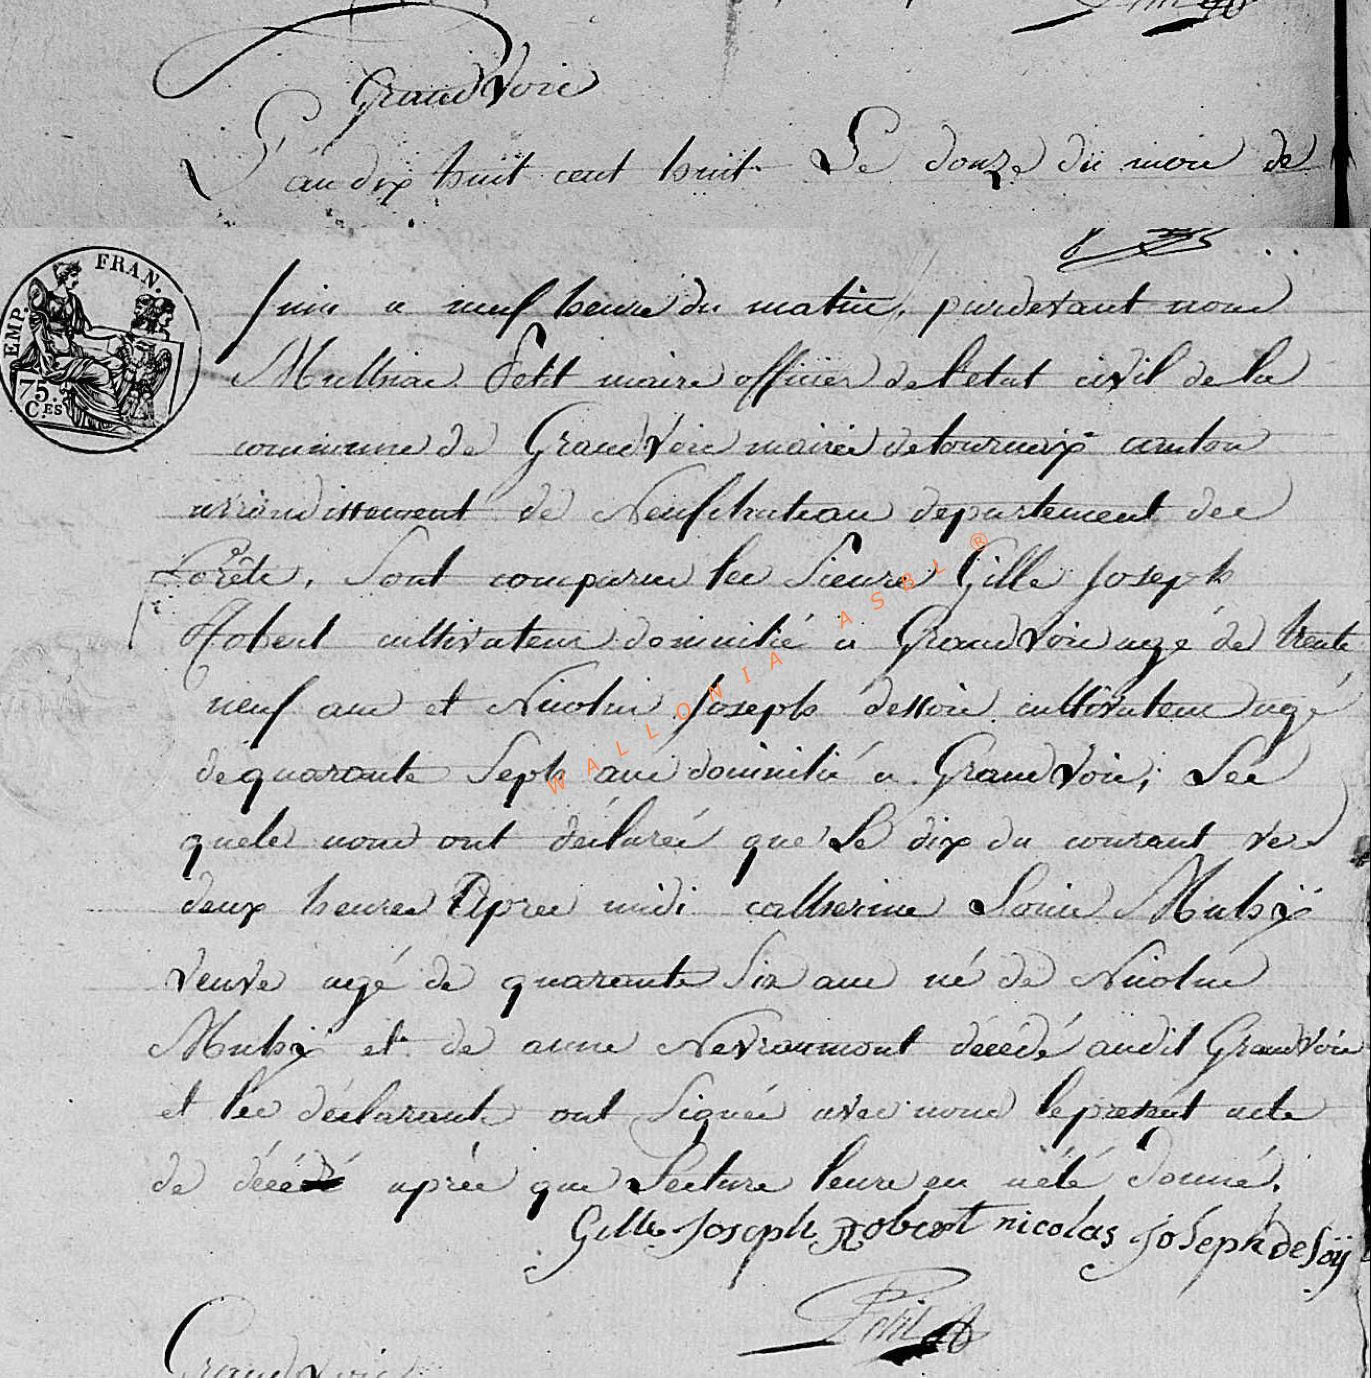 Grandvoir
L'an dix huit cent huit Le douze du mois de
FRAN.
EMP.
75.
C.ES
juin a neuf heure du matin, pardevant nous
Mathias Petit maire officier de l'etat civil de la
commune de Grandvoir mairie de tournaix canton
arrondissement de Neufchateau departement des
Forêts, Sont comparus les Sieurs Gille Joseph
Robert cultivateur domicilié a Grandvoir agé de trente
neuf ans et Nicolas Joseph dessoie cultivateur agé
de quarante Sept ans domicilié a Grandvoir, Les
quels nous ont déclarés que Le dix du courant vers
deux heures Apres midi catherine Mahÿ
veuve agé de quarante Six ans né de Nicolas
Mahÿ et de anne Nevraumont décédé audit Grandvoir
et les déclarants ont Signés avec nous le present acte
de décédé après que Lecture leurs en a été donné.
Gille Joseph Robert nicolas joseph desoÿ
Petit
Grandvoir
WALLONIA ASBL ®